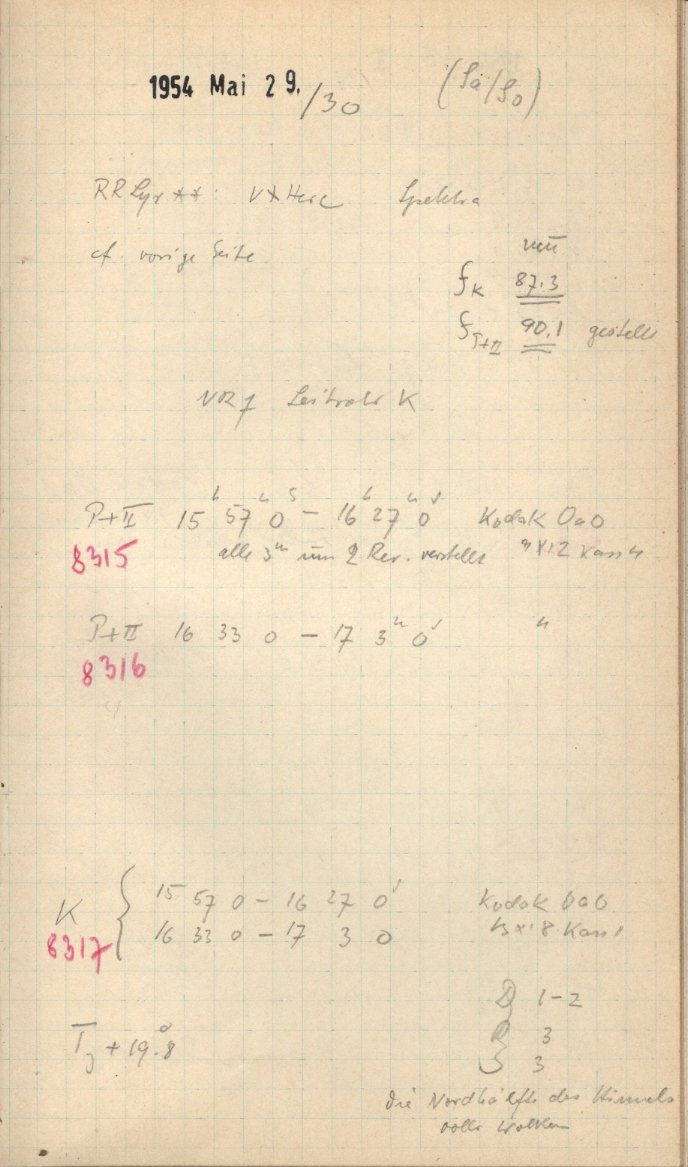 1954 Mai 29./30 (Sä/So)
RR Lyr ** V*Herc Spektra
cf. vorige Seite
nun
f_K 87.3
f_P+II 90.1 gestellt
Leitrohr K
P+II 15h 57m 0s – 16h 27m 0s Kodak OaO
8315 alle 3m um 2 Rev. verstellt 9x12 Kass
P+II 16 33 0 – 17 3m 0s "
8316
K { 15 57 0 – 16 27 0s Kodak OaO
8317 16 33 0 – 17 3 0 Kass
D 1–2
R 3
T + 19°.8
S 3
die Nordhälfte des Himmels
voller Wolken